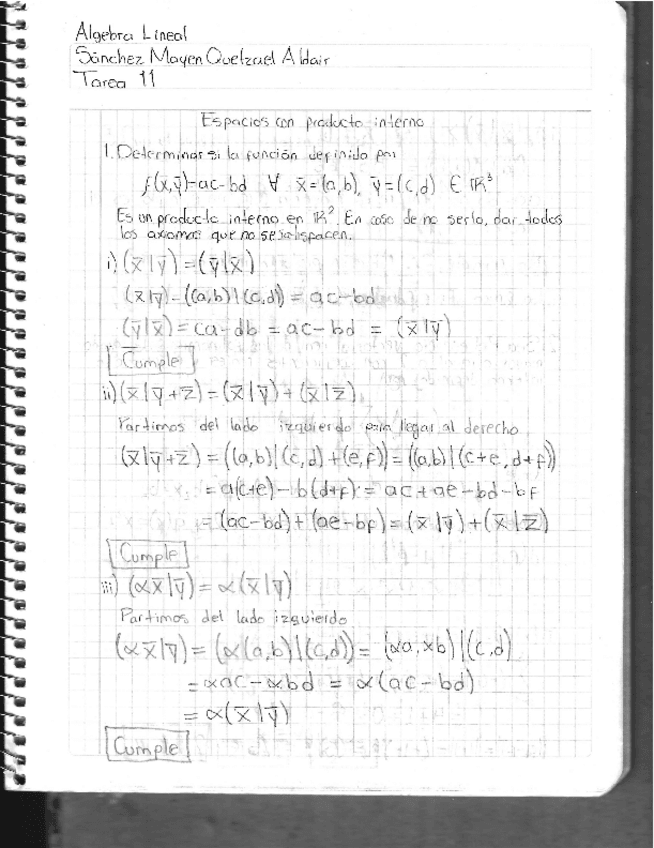 Algebra Lineal
Sánchez Mayen Quetzael Aldair
Tarea 11
Espacios con producto interno
1. Determinar si la función definida por
f(x̄,ȳ)=ac-bd ∀ x̄=(a,b), ȳ=(c,d) ∈ ℝ²
Es un producto interno en ℝ². En caso de no serlo, dar todos
los axiomas que no se satisfacen.
i) (x̄|ȳ)=(ȳ|x̄)
(x̄|ȳ)=((a,b)|(c,d))=ac-bd
(ȳ|x̄)=ca-db=ac-bd=(x̄|ȳ)
Cumple
ii) (x̄|ȳ+z̄)=(x̄|ȳ)+(x̄|z̄)
Partimos del lado izquierdo para llegar al derecho
(x̄|ȳ+z̄)=((a,b)|(c,d)+(e,f))=((a,b)|(c+e,d+f))
=a(c+e)-b(d+f)=ac+ae-bd-bf
=(ac-bd)+(ae-bf)=(x̄|ȳ)+(x̄|z̄)
Cumple
iii) (αx̄|ȳ)=α(x̄|ȳ)
Partimos del lado izquierdo
(αx̄|ȳ)=(α(a,b)|(c,d))=(αa,αb)|(c,d)
=αac-αbd=α(ac-bd)
=α(x̄|ȳ)
Cumple